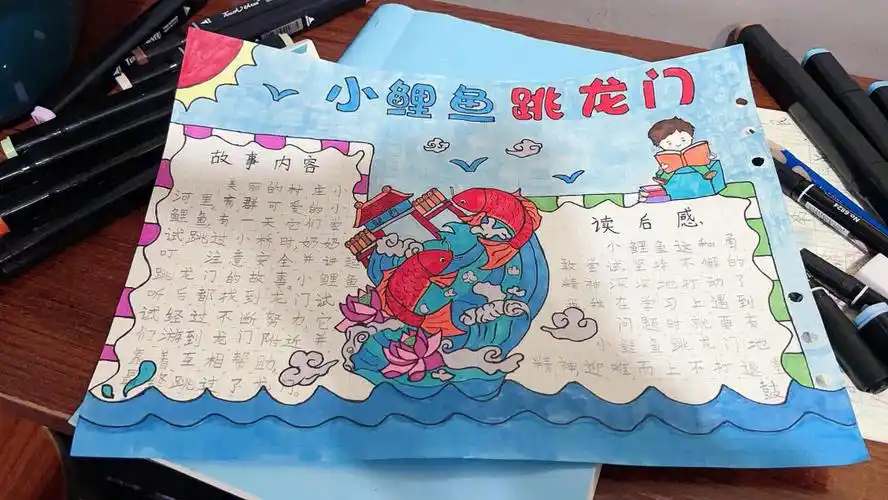 小鲤鱼跳龙门
故事内容
美丽的村庄小
河里有群可爱的小
鲤鱼有一天它们尝
试跳过小桥时奶奶
叮 注意安全并讲起
跳龙门的故事。小鲤鱼
听后都找到龙门试
试经过不断努力,它
们游到龙门附近并
靠着互相帮助
最终跳过了龙
读后感
小鲤鱼这种勇
敢尝试坚持不懈的
精神深深地打动了
我在学习上遇到
问题时就要有
小鲤鱼跳龙门地
精神迎难而上不打退
鼓